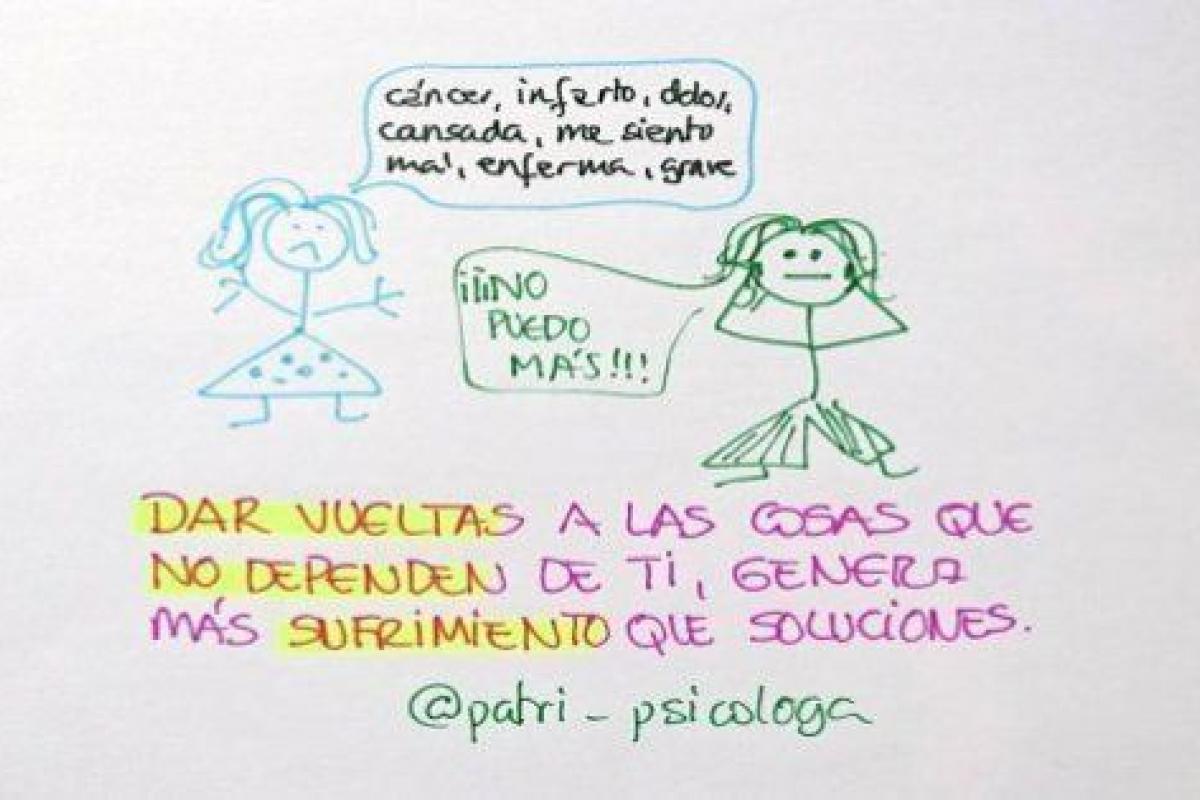 cáncer, infarto, dolor,
cansada, me siento
mal, enferma, grave
¡¡¡NO
PUEDO
MÁS!!!
DAR VUELTAS A LAS COSAS QUE
NO DEPENDEN DE TI, GENERA
MÁS SUFRIMIENTO QUE SOLUCIONES.
@patri_psicologa